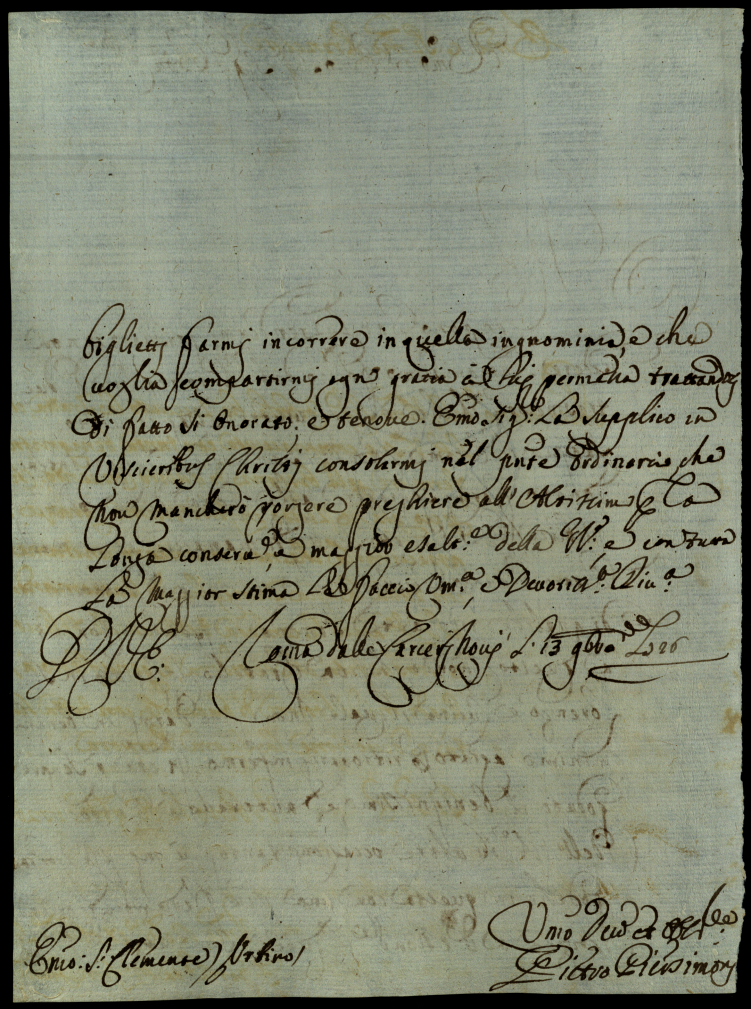 biglietti farmi incorrere in quella ingnominia, e che
voglia compartirmi ogni gratia à lui permessa trattandosi
di fatto si onorato, e tenove. Emo Sig.r La supplico in
Visceribus Christi consolarmi nel pnte ordinario che
non mancherò porgere preghiere all'Altissimo p la
Longa conserva.ne e maggior esalt.ne della e con tutta
La Maggior stima Le faccio Um.a e Devotis.a Riv.a
Roma dalle Carceri Nove li 13 9bre 1726
Umo Devo et
Pietro Piersimoni
Emo: S. Clemente Urbino